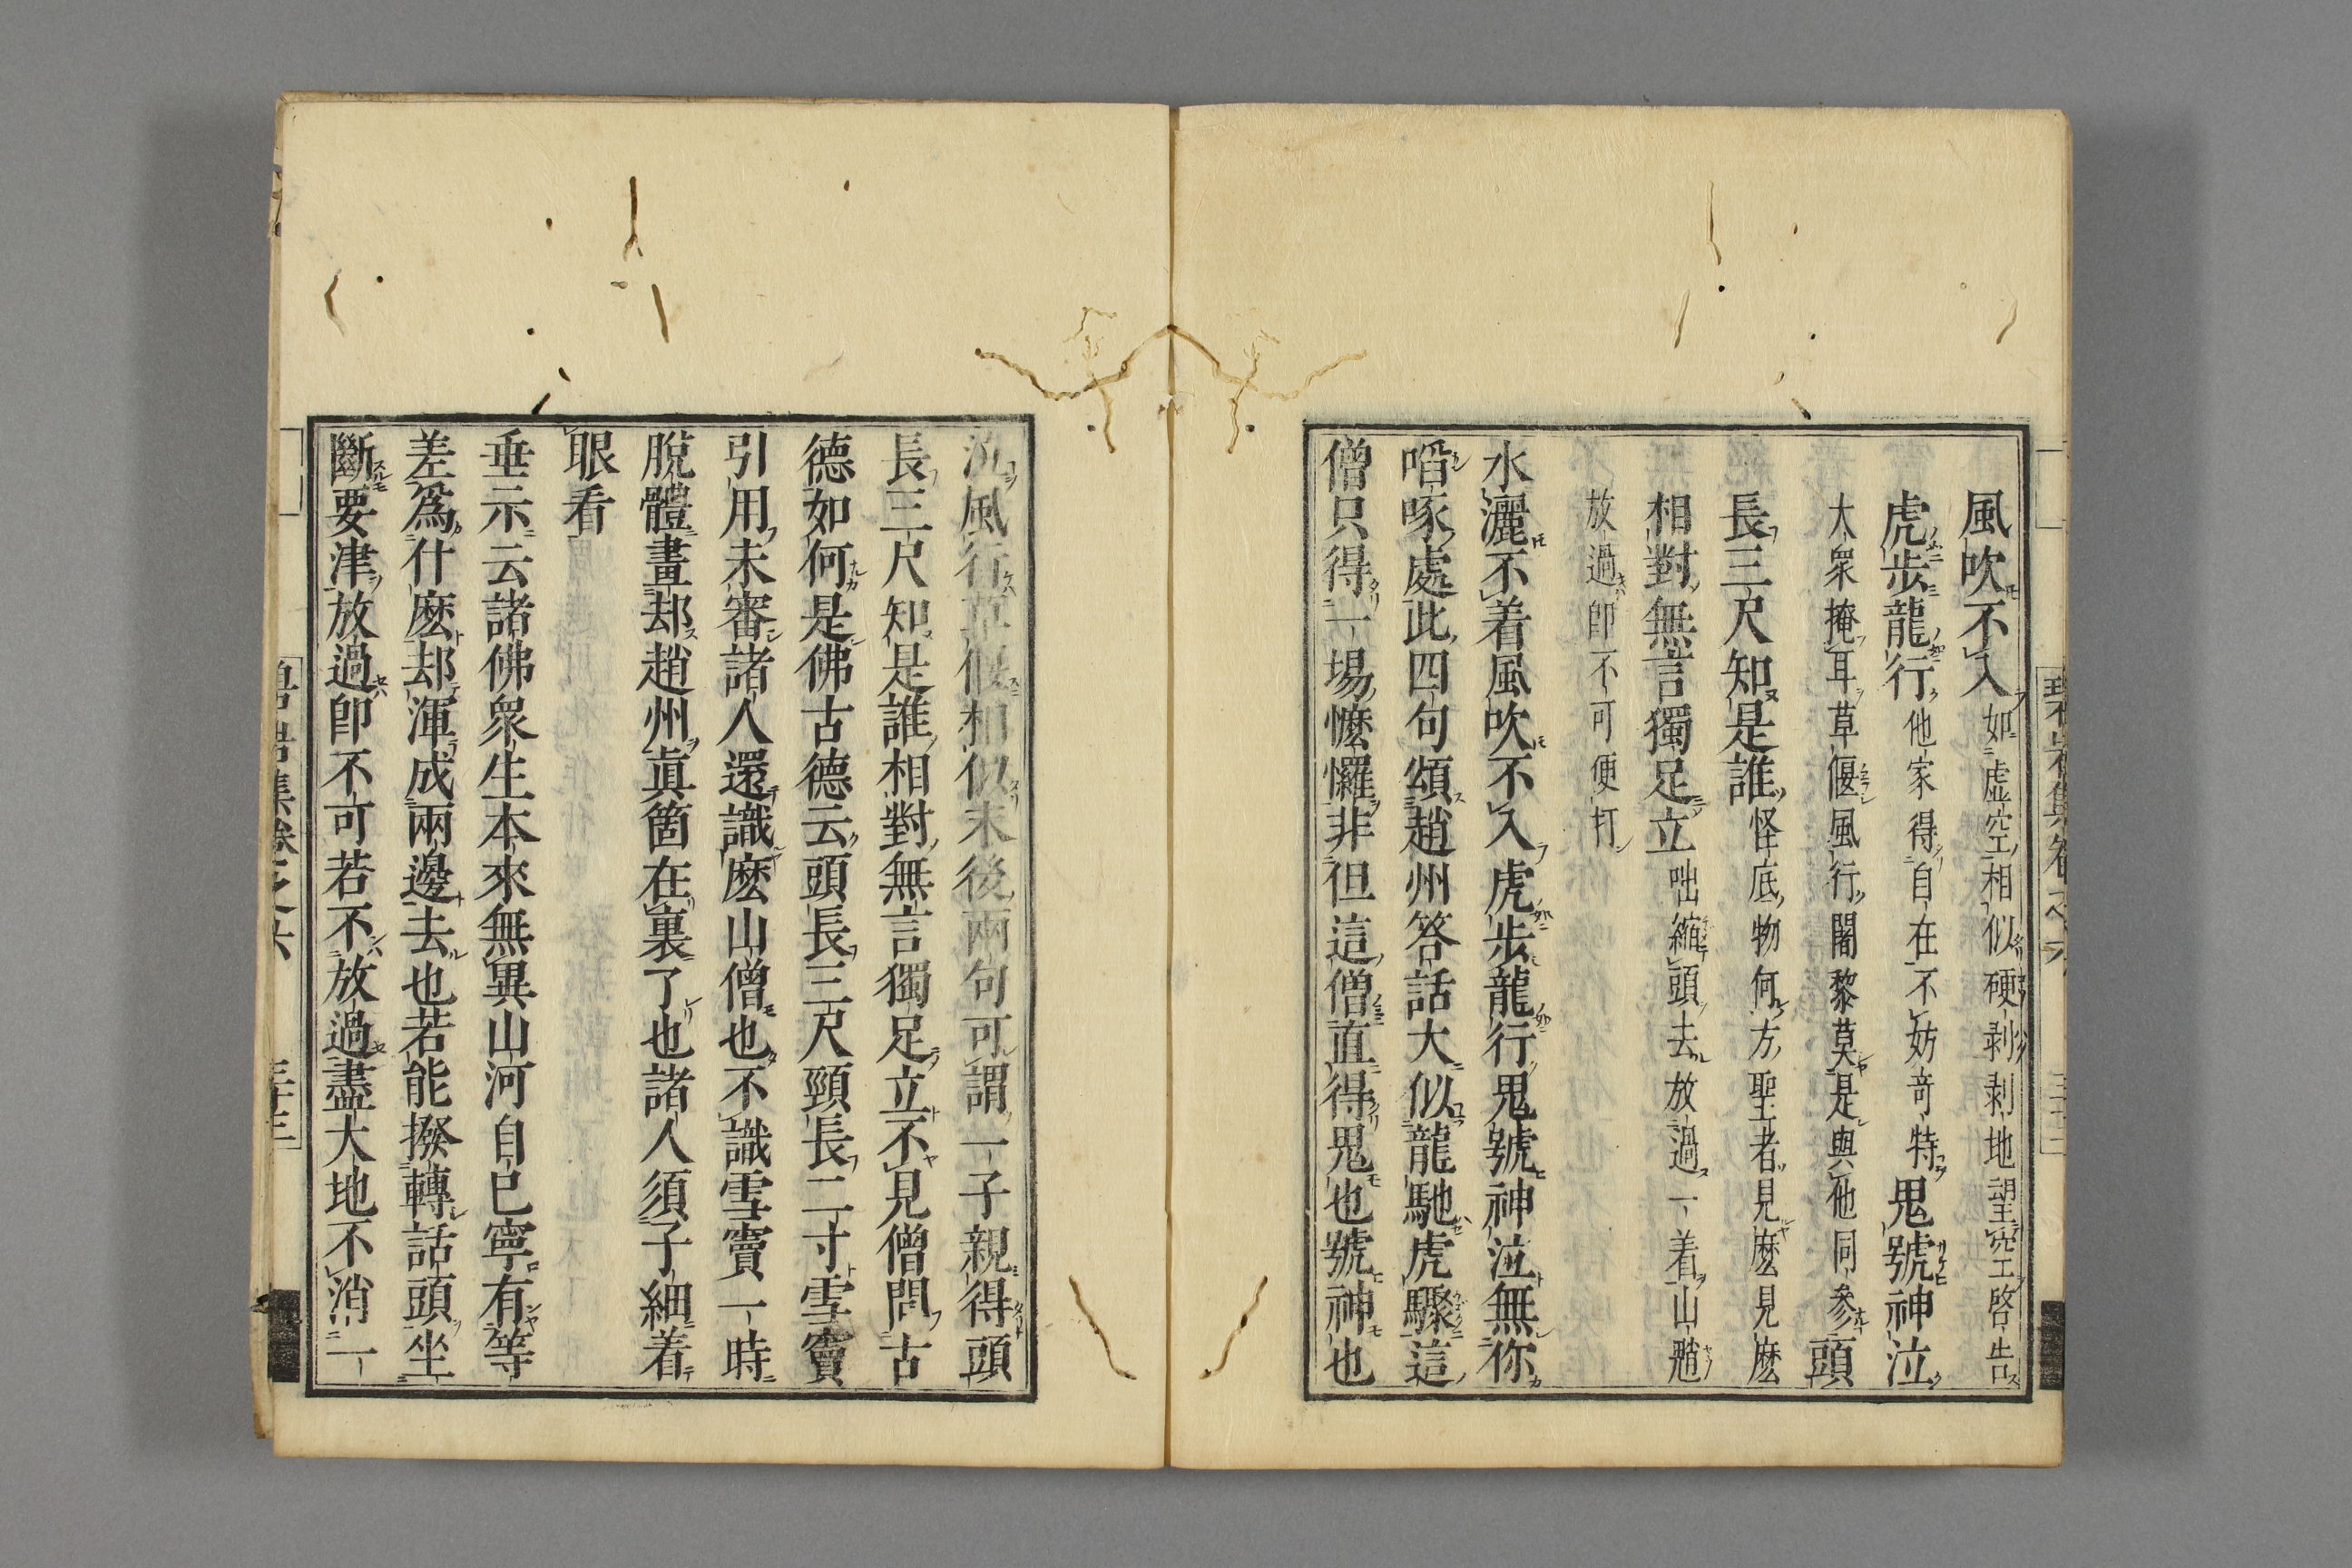 風吹不入如虛空相似硬剥剥地望空啓告
虎步龍行他家得自在不妨竒特鬼號神泣
大衆掩耳草偃風行闍黎莫是與他同參頭
長三尺知是誰怪底物何方聖者見麽見麽
相對無言獨足立咄縮頭去放過一着山魈
放過即不可便打
水灑不着風吹不入虎步龍行鬼號神泣無你
㗖啄處此四句頌趙州答話大似龍馳虎驟這
僧只得一場懡㦬非但這僧直得鬼也號神也
泣風行草偃相似末後兩句可謂一子親得頭
長三尺知是誰相對無言獨足立不見僧問古
德如何是佛古德云頭長三尺頸長二寸雪竇
引用未審諸人還識麽山僧也不識雪竇一時
脫體畫却趙州眞箇在裏了也諸人須子細着
眼看
垂示云諸佛衆生本來無異山河自己寧有等
差爲什麽却渾成兩邊去也若能撥轉話頭坐
斷要津放過卽不可若不放過盡大地不消一